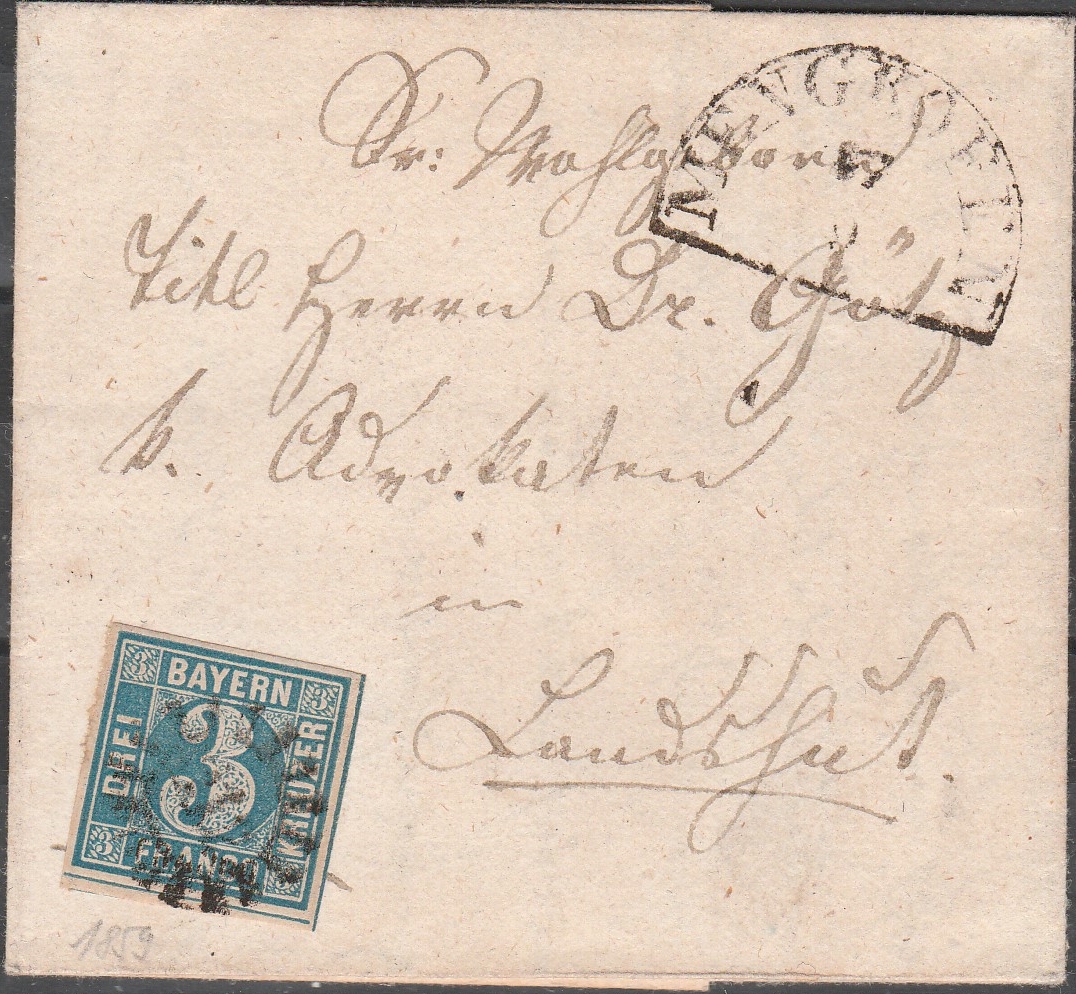 MENGKOFEN
Sr: Wohlgeboren
Titl Herrn Dr. Götz
k. Advokaten
in
Landshut.
BAYERN
3 3
DREI 3 KREUZER
3
FRANCO
1859